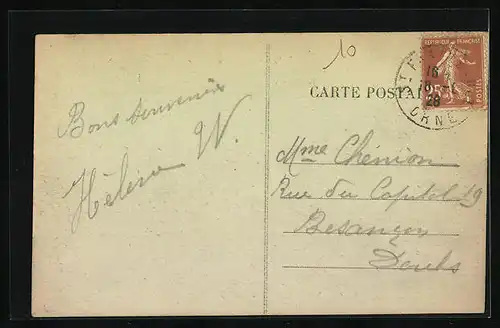 10
REPUBLIQUE FRANÇAISE
POSTES
16
28
ORNE
CARTE POSTALE
Bons souvenirs
Hélène W.
Mme Chénion
Rue du Capitol 19
Besançon
Doubs